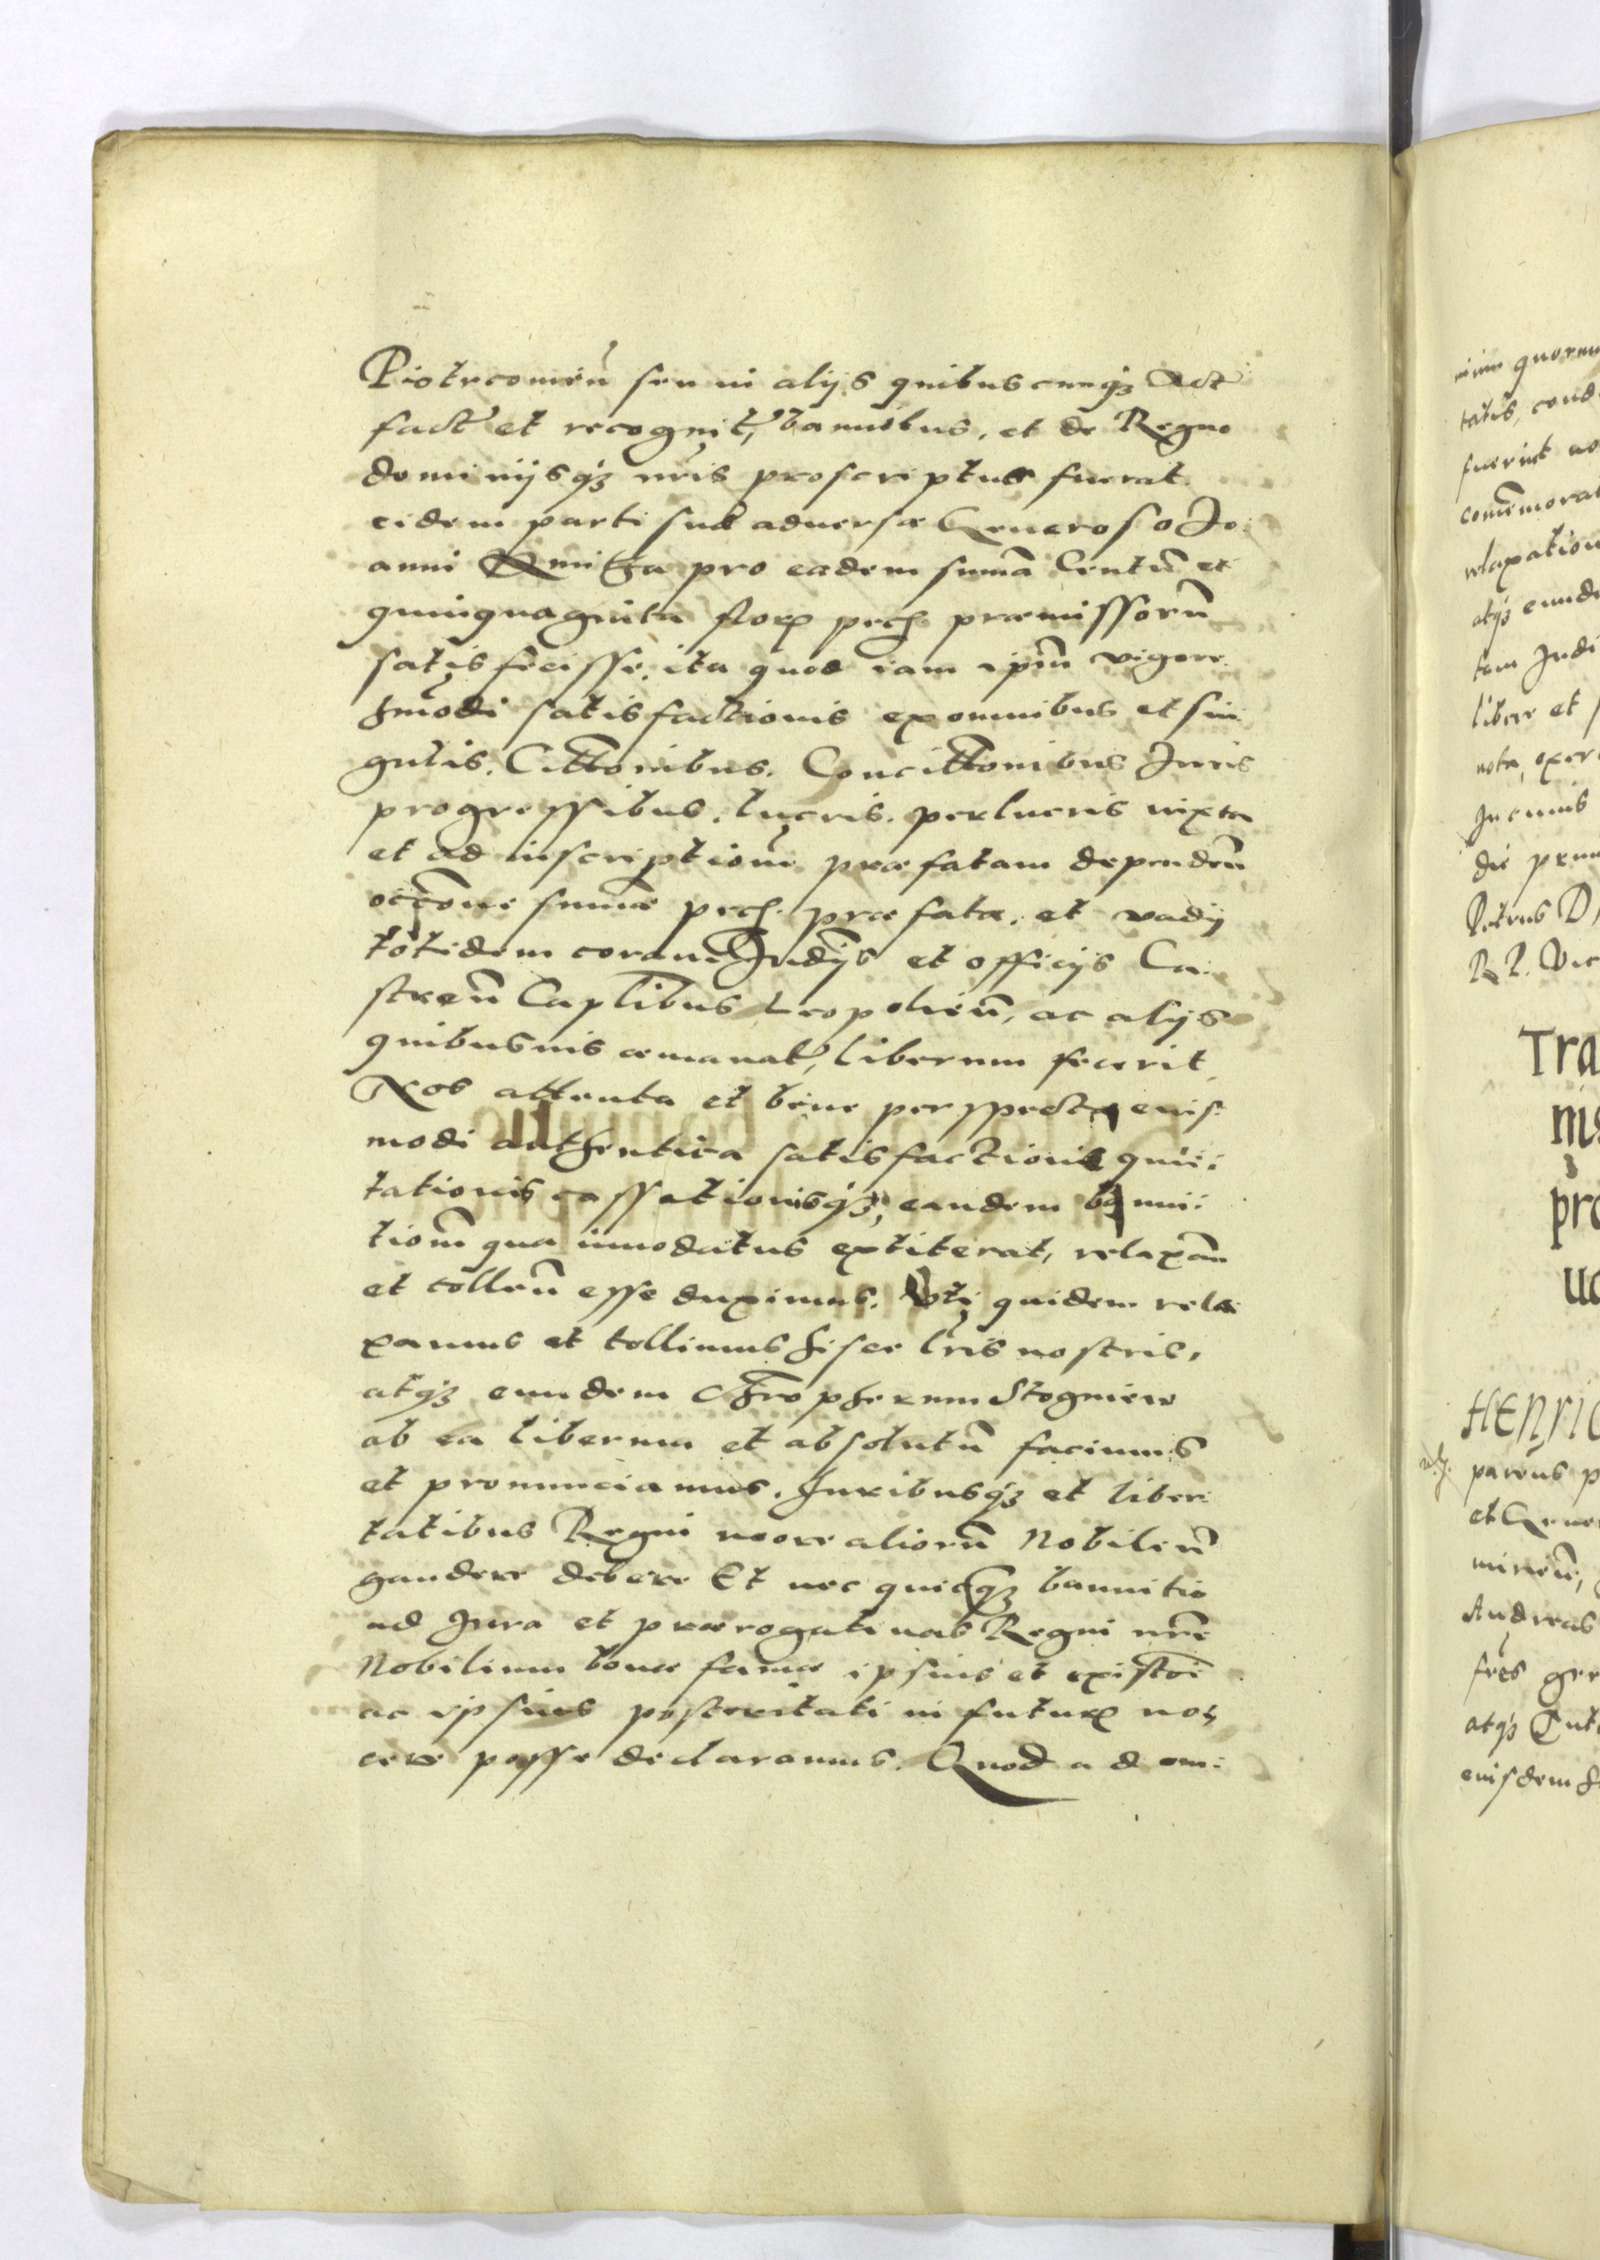 Piotrcouien̄ seu in alijs quibuscunqꝫ Act
fact et recognit, bannitus, et de Regno
dominijsqꝫ nr̄is proscriptus fuerat
eidem parti suæ adversæ Generoso Jo:
anni Kmitha pro eadem sum̄a Centū et
quinquaginta flor pecȩ præmissorū
satisfecisse, ita quod iam ipm̄ vigore
hmōdi satisfactionis ex omnibus et sin
gulis, Citt̄onibus, Concitt̄onibus Juris
progressibus, lucris, perlucris iuxta
et ad inscriptionē præfatam dependen̄
occōne summæ pecȩ præfatæ, et vadij
totidem coram Judijs et officijs Ca:
stren̄ Capt̄libus Leopolien̄, ac alijs
quibusuis æmanat, liberum fecerit,
Nos attenta et bene perspecta euis:
modi authentica satisfactionis quie:
tationis cassationisqꝫ, eandem banni:
tionē qua innodatus extiterat, relaxan̄
et tollen̄ esse duximus, Vti quidem rela
xamus et tollimus hisce lr̄is nostris,
atqꝫ eundem Chrōpherum Stogniew
ab ea liberum et absolutū facimus
et pronunciamus, Juribusqꝫ et liber
tatibus Regni more aliorū Nobilium̄
gaudere debere Et nec quicqꝫ bannitio
ad Jura et prærogatiuas Regni nr̄i
Nobilium bonæ famæ ipsius et existōi
ac ipsius posteritati in futur no:
cere posse declaramus. Quod ad om:
inim quorum
tatis, cond
fuerint no
com̄emorat
relaxation
atqꝫ eund
tam Judi
libere et
nota, exer
In cuius
die prim
Petrus D
R P. Vic
Tra
nis
pro
uo
HENRIC
parēus p
et Gener
minen̄,
Andreas
fr̄es ger
atqꝫ
eiusdem